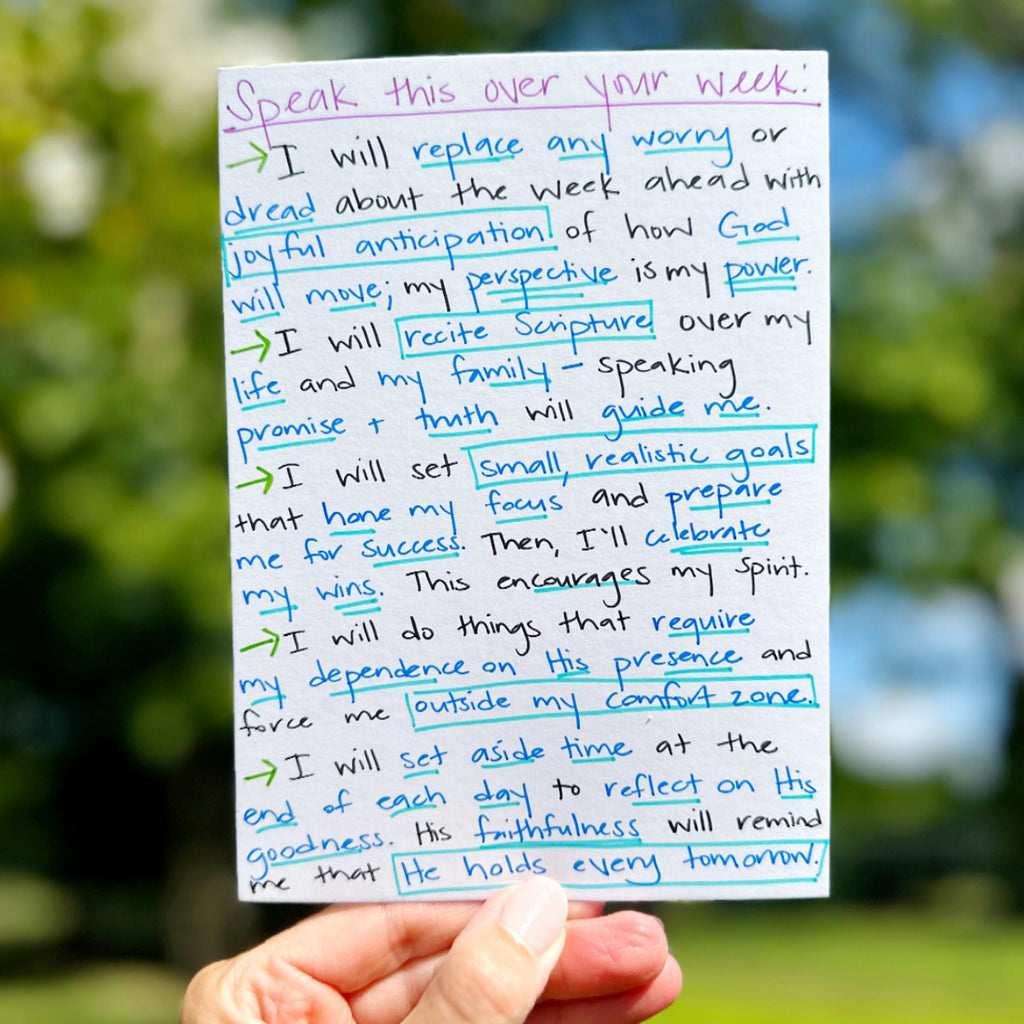 Speak this over your week:
→ I will replace any worry or
dread about the week ahead with
joyful anticipation of how God
will move; my perspective is my power.
→ I will recite Scripture over my
life and my family – speaking
promise + truth will guide me.
→ I will set small, realistic goals
that hone my focus and prepare
me for success. Then, I'll celebrate
my wins. This encourages my spirit.
→ I will do things that require
my dependence on His presence and
force me outside my comfort zone.
→ I will set aside time at the
end of each day to reflect on His
goodness. His faithfulness will remind
me that He holds every tomorrow.